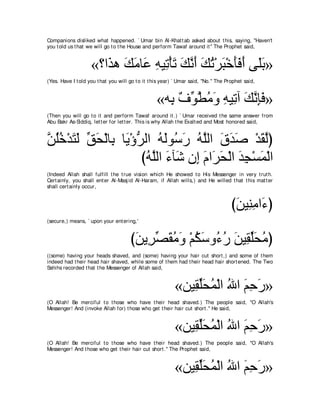 Companions disliked what happened. `Umar bin Al-Khattab asked about this, saying, "Haven't
you told us that we will go to the House and perform Tawaf around it'' The Prophet said,
«بَلَى أَفَأَخْبَرْتُكَ أَنَّكَ تَأْتِيهِ عَامَكَ هذَا؟»
(Yes. Have I told you that you will go to it this year) `Umar said, "No.'' The Prophet said,
«فَإِنَّكَ آتِيهِ وَمُطَّوِّفٌ بِهِ»
(Then you will go to it and perform Tawaf around it.) `Umar received the same answer from
Abu Bakr As-Siddiq, letter for letter. This is why Allah the Exalted and Most honored said,
(لَّقَدْ صَدَقَ اللَّهُ رَسُولَهُ الرُّؤْيَا بِالْحَقِّ لَتَدْخُلُنَّ
الْمَسْجِدَ الْحَرَامَ إِن شَآءَ اللَّهُ)
(Indeed Allah shall fulfill the true vision which He showed to His Messenger in very truth.
Certainly, you shall enter Al-Masjid Al-Haram, if Allah wills,) and He willed that this matter
shall certainly occur,
(ءَامِنِينَ)
(secure,) means, `upon your entering,'
(مُحَلِّقِينَ رُءُوسَكُمْ وَمُقَصِّرِينَ)
((some) having your heads shaved, and (some) having your hair cut short,) and some of them
indeed had their head hair shaved, while some of them had their head hair shortened. The Two
Sahihs recorded that the Messenger of Allah said,
«رَحِمَ اللهُ الْمُحَلِّقِين»
(O Allah! Be merciful to those who have their head shaved.) The people said, "O Allah's
Messenger! And (invoke Allah for) those who get their hair cut short.'' He said,
«رَحِمَ اللهُ الْمُحَلِّقِين»
(O Allah! Be merciful to those who have their head shaved.) The people said, "O Allah's
Messenger! And those who get their hair cut short.'' The Prophet said,
«رَحِمَ اللهُ الْمُحَلِّقِين»